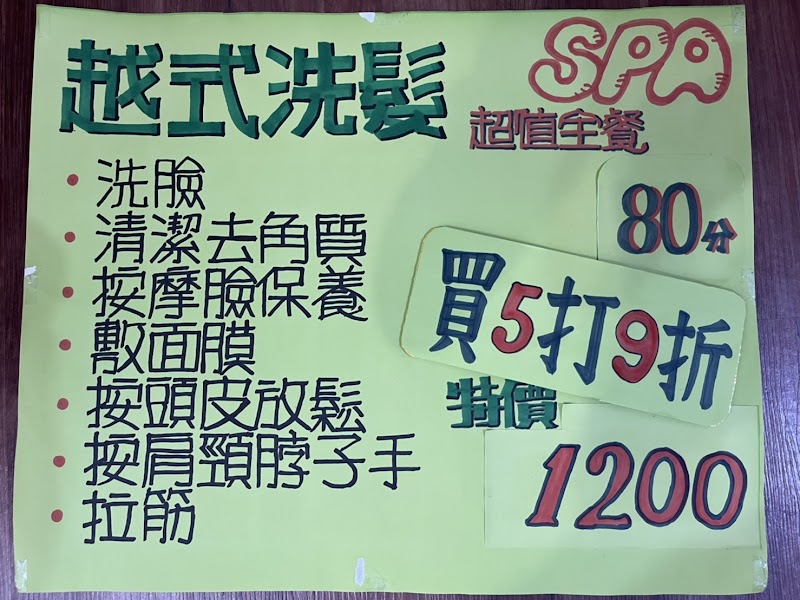 越式洗髮
SPA
超值全餐
80分
• 洗臉
• 清潔去角質
• 按摩臉保養
• 敷面膜
• 按頭皮放鬆
• 按肩頸脖子手
• 拉筋
買5打9折
特價
1200